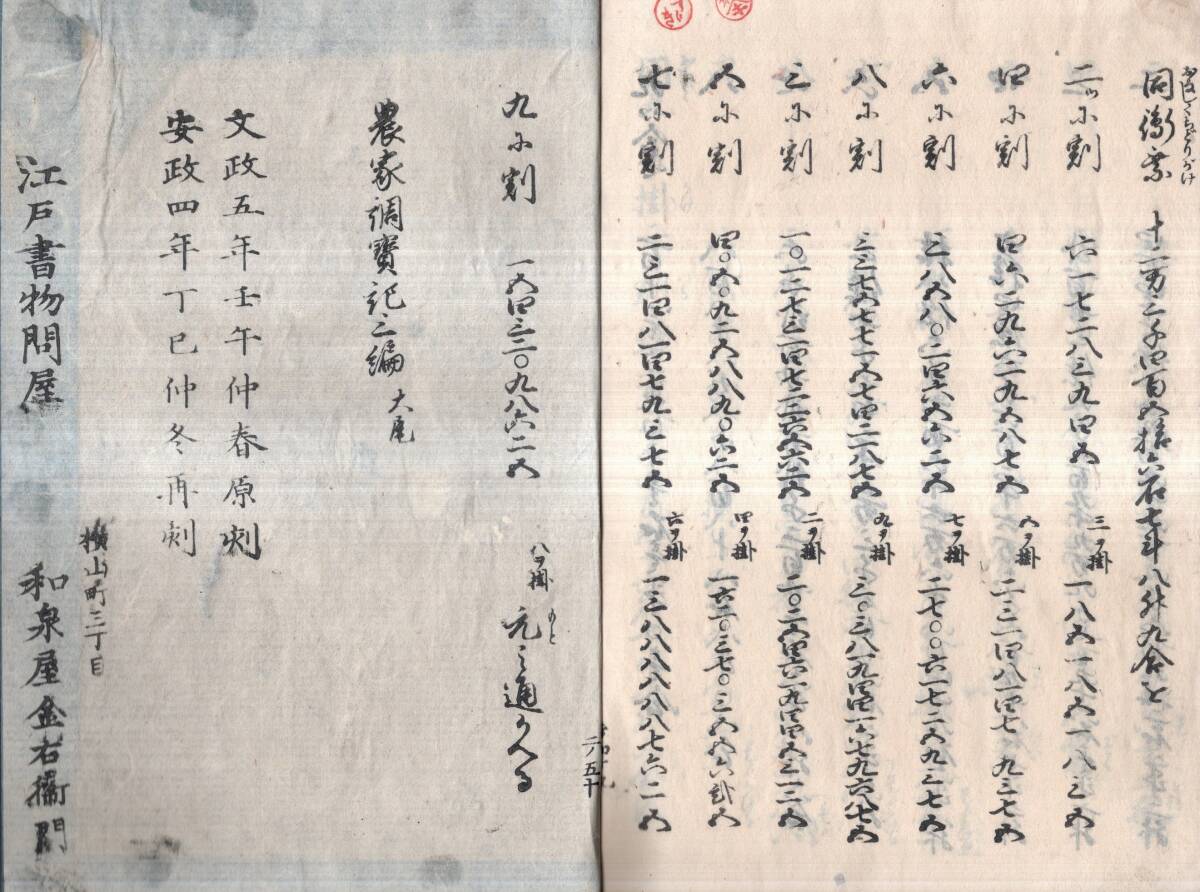 同鵆乗 十二万三千四百五拾六石七斗八升九合を
おなじくちどりかけ
二ツに割 六一七二八三九四五 三ヲ掛 一八五一八五一八三五
四に割 四六二九六二九五八七五 五ヲ掛 二三一四八一四七九三七五
六に割 三八五八〇二四六五六二五 七ヲ掛 二七〇〇六一七二五九三七五
八に割 三三七五七七一五七四二一八七五 九ヲ掛 三〇三八一九四四一六七九六八七五
三に割 一〇一二七三一四七二二六五六二五 二ヲ掛 二〇二五四六二九四四五三一二五
五に割 四〇五〇九二五八八九〇六二五 四ヲ掛 一六二〇三七〇三五五六弐五
七に割 二三一四八一四七九三七五 六ヲ掛 一三八八八八八八七六二五
九に割 一五四三二〇九八六二五 八ヲ掛 元之通りかへる
もと
農家調寶記三編 大尾
文政五年壬午仲春原刻
安政四年丁巳仲冬再刻
横山町三丁目
江戸書物問屋 和泉屋金右衛門